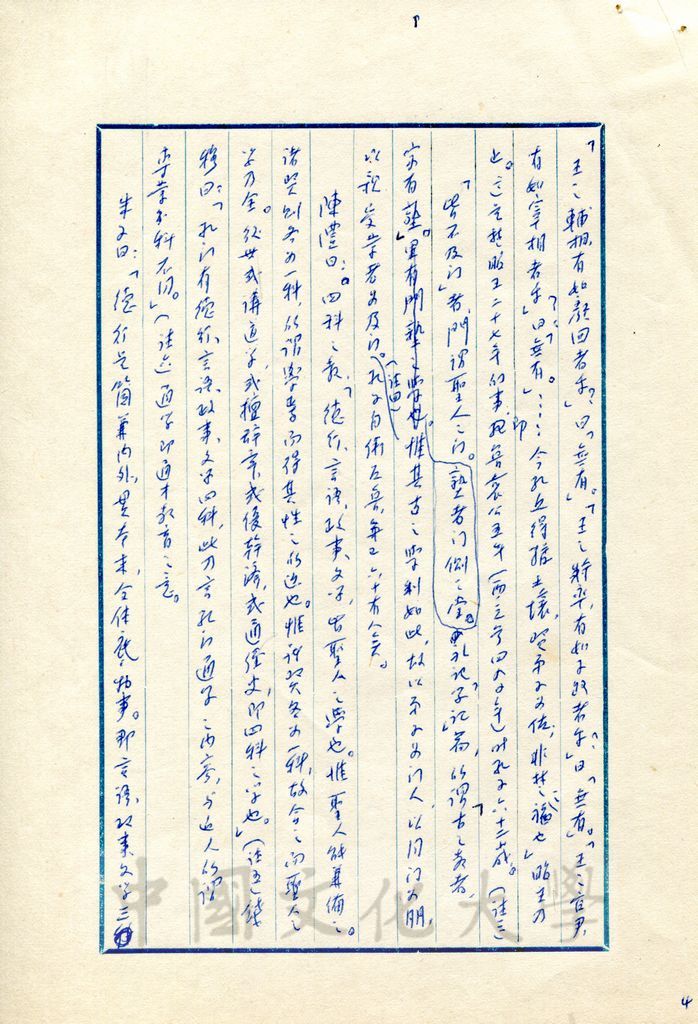 「王之輔相有如顏回者乎？」曰「無有。」「王之將率，有如子路者乎？」曰「無有。」「王之官尹
有如宰相者乎？」曰「無有。」……今孔丘得據土壤，賢弟子為佐，非楚之福也」昭王乃
止。這是楚昭王二十七年的事，即魯哀公五年（西元前四八九年）時孔子六十三歲。（註三）
「皆不及門」者，門謂聖人之門。塾者門側之堂。「禮記學記篇」所謂「古之教者，
家有塾」。里有門塾之學也。惟其古之學制如此，故以弟子為門人，以同門為朋
以親受業者為及門。（註四）孔子自衛反魯，年已六十有八矣。
陳澧曰：「四科之教，「德行、言語、政事、文學，皆聖人之學也。惟聖人能兼備之。
諸賢則各為一科，所謂學焉而得其性之所近也。惟諸賢各為一科，故合之而聖人之
學乃全。後世或講道學，或擅辭章，或優幹濟，或通經史，即四科之學也。」（註五）錢
穆曰：「孔門有德行、言語、政事、文學四科，此乃言孔門通學之內容，與近人所謂
專業分科不同。」（註六）通學即通才教育之意。
朱子曰：「德行是箇兼內外，貫本末，全体底物事。那言語、政事、文學三
中國文化大學
4